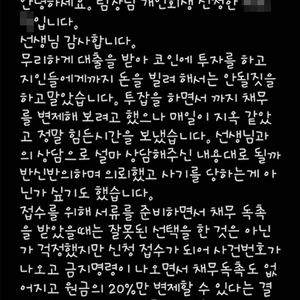 안녕하세요. 팀장님 개인회생 신청한
입니다.
선생님 감사합니다.
무리하게 대출을 받아 코인에 투자를 하고
지인들에게까지 돈을 빌려 해서는 안될짓을
하고말았습니다. 투잡을 하면서 까지 채무
를 변제해 보려고 했으나 매일이 지옥 같았
고 정말 힘든시간을 보냈습니다. 선생님과
의 상담으로 설마 상담해주신 내용대로 될까
반신반의하며 의뢰했고 사기를 당하는게 아
닌가 싶기도 했습니다.
접수를 위해 서류를 준비하면서 채무 독촉
을 받았을때는 잘못된 선택을 한 것은 아닌
가 걱정했지만 신청 접수가 되어 사건번호가
나오고 금지명령이 나오면서 채무독촉도 없
어지고 원금의 20%만 변제할 수 있다는 결